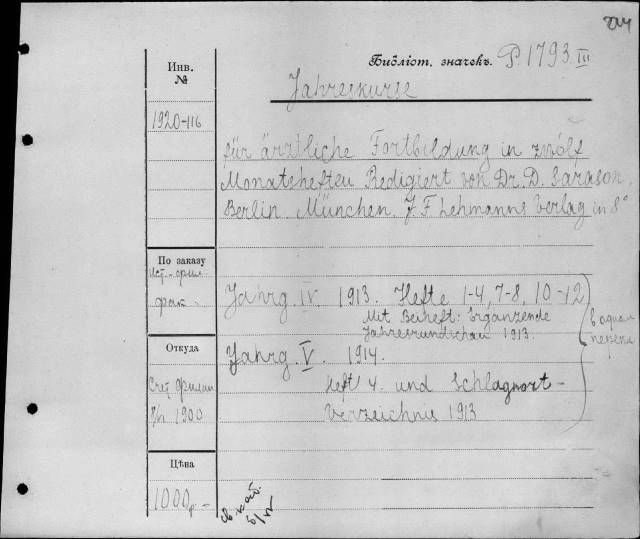 Библіот. значекъ. P. 1793 III
Jahreskurse
Инв.
№
1920-116
für ärztliche Fortbildung in zwölf
Monatsheften Redigiert von Dr. D. Sarason.
Berlin. München. J. F. Lehmanns Verlag in 8°
По заказу
Ист.-фил.
фак.
Jahrg. IV. 1913. Hefte 1-4, 7-8, 10-12
Mit Beiheft: Ergänzende
Jahresrundschau 1913.
в одном
перепл.
Откуда
Jahrg. V. 1914.
Heft 4. und Schlagwort-
Verzeichnis 1913
Счет
1900
Цѣна
1000 р-